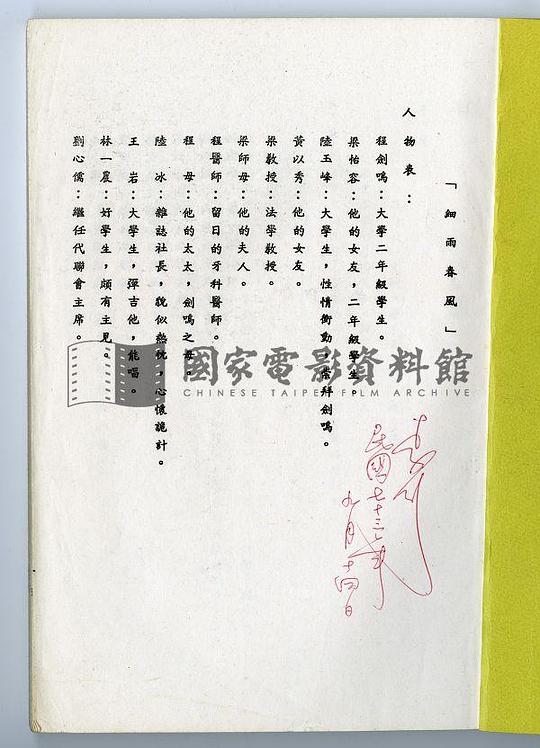 「細雨春風」
人物表：
程劍鳴：大學二年級學生。
梁怡容：他的女友，二年級學生。
陸玉峰：大學生，性情衝動，崇拜劍鳴。
黃以秀：他的女友。
梁教授：法學教授。
梁師母：他的夫人。
程醫師：留日的牙科醫師。
程　母：他的太太，劍鳴之母。
陸　冰：雜誌社長，貌似熱忱，心懷詭計。
王　岩：大學生，彈吉他，能唱。
林一農：好學生，頗有主見。
劉心儒：繼任代聯會主席。
民國七十三年
九月十四日
國家電影資料館
CHINESE TAIPEI FILM ARCHIVE